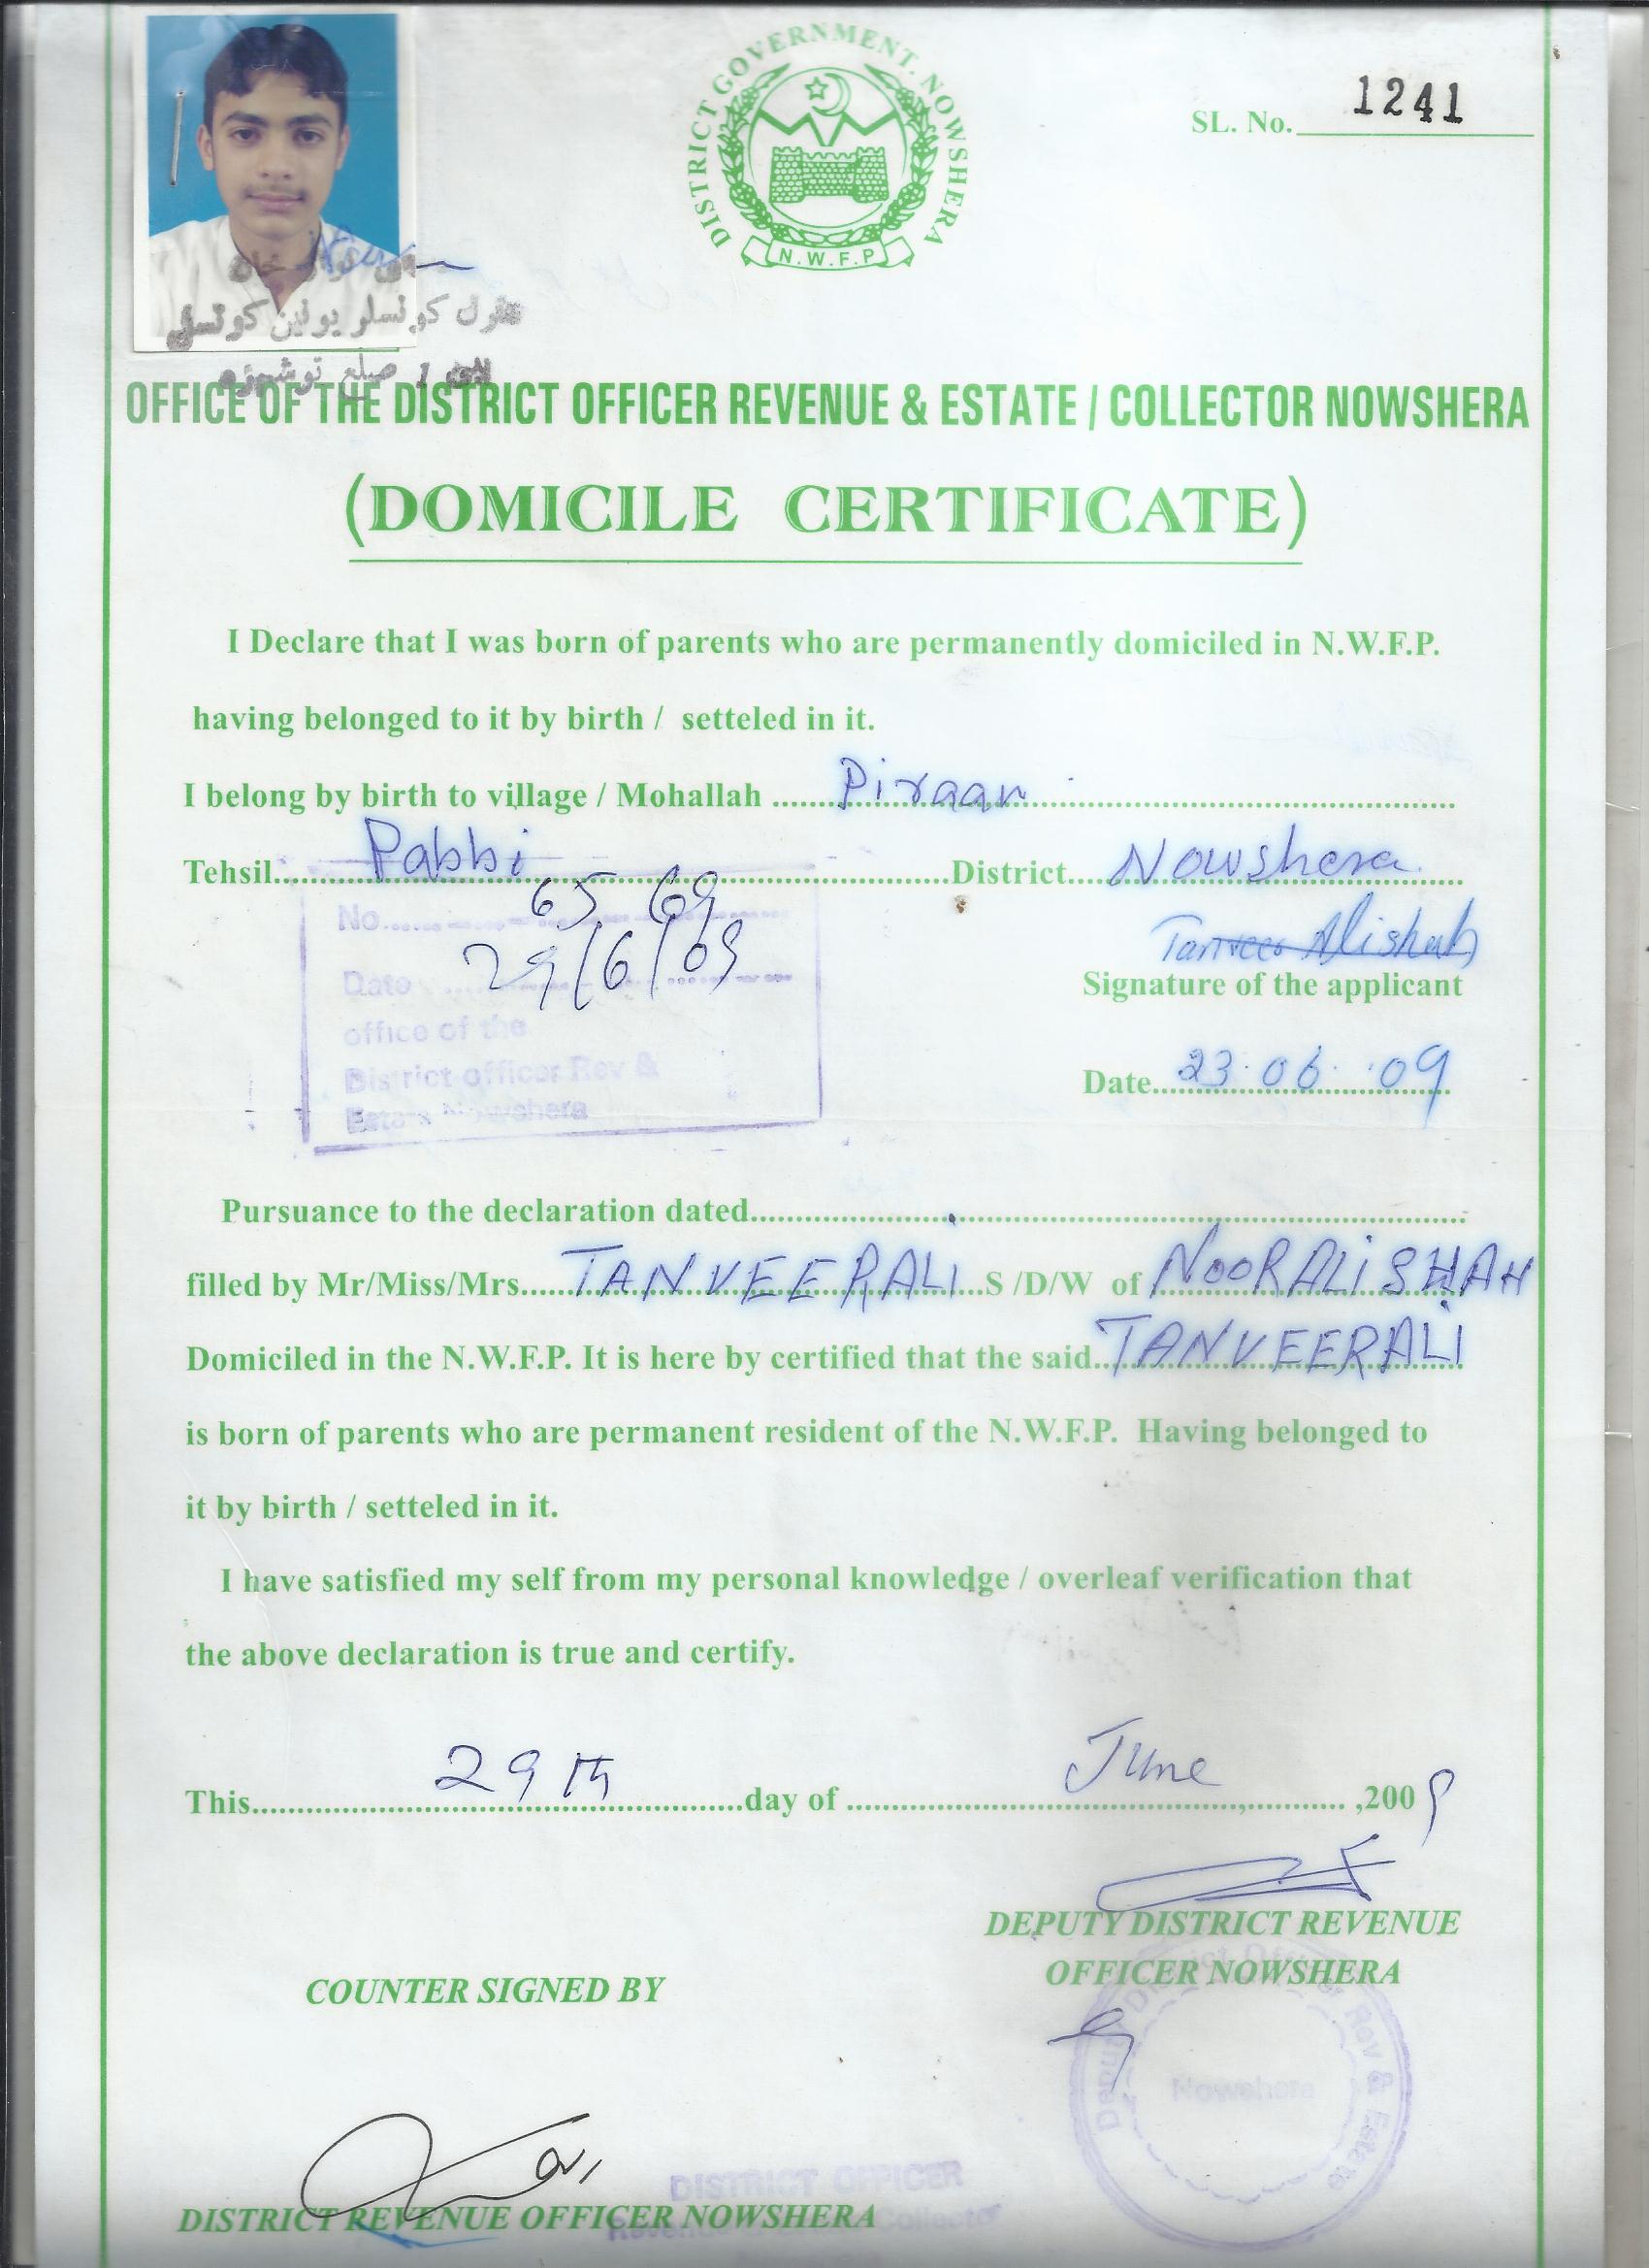 DISTRICT GOVERNMENT. NOWSHERA
N.W.F.P
SL. No. 1241
خان
کونسلر یونین کونسل
ضلع نوشہرہ
OFFICE OF THE DISTRICT OFFICER REVENUE & ESTATE / COLLECTOR NOWSHERA
(DOMICILE CERTIFICATE)
I Declare that I was born of parents who are permanently domiciled in N.W.F.P.
having belonged to it by birth / setteled in it.
I belong by birth to village / Mohallah ...... Piraan ......
Tehsil...... Pabbi ......District...... Nowshera ......
No...... 6569
Date ...... 29/6/09
office of the
District officer Rev &
Estate Nowshera
Tanveer Alishah
Signature of the applicant
Date...... 23.06.09
Pursuance to the declaration dated......
filled by Mr/Miss/Mrs...... TANVEERALI ...S /D/W of NOORALISHAH
Domiciled in the N.W.F.P. It is here by certified that the said.. TANVEERALI
is born of parents who are permanent resident of the N.W.F.P. Having belonged to
it by birth / setteled in it.
I have satisfied my self from my personal knowledge / overleaf verification that
the above declaration is true and certify.
This...... 29th ......day of ...... June ...... ,2009
DEPUTY DISTRICT REVENUE
OFFICER NOWSHERA
COUNTER SIGNED BY
Deputy District Officer Rev & Estate
Nowshera
DISTRICT OFFICER
DISTRICT REVENUE OFFICER NOWSHERA
Collector